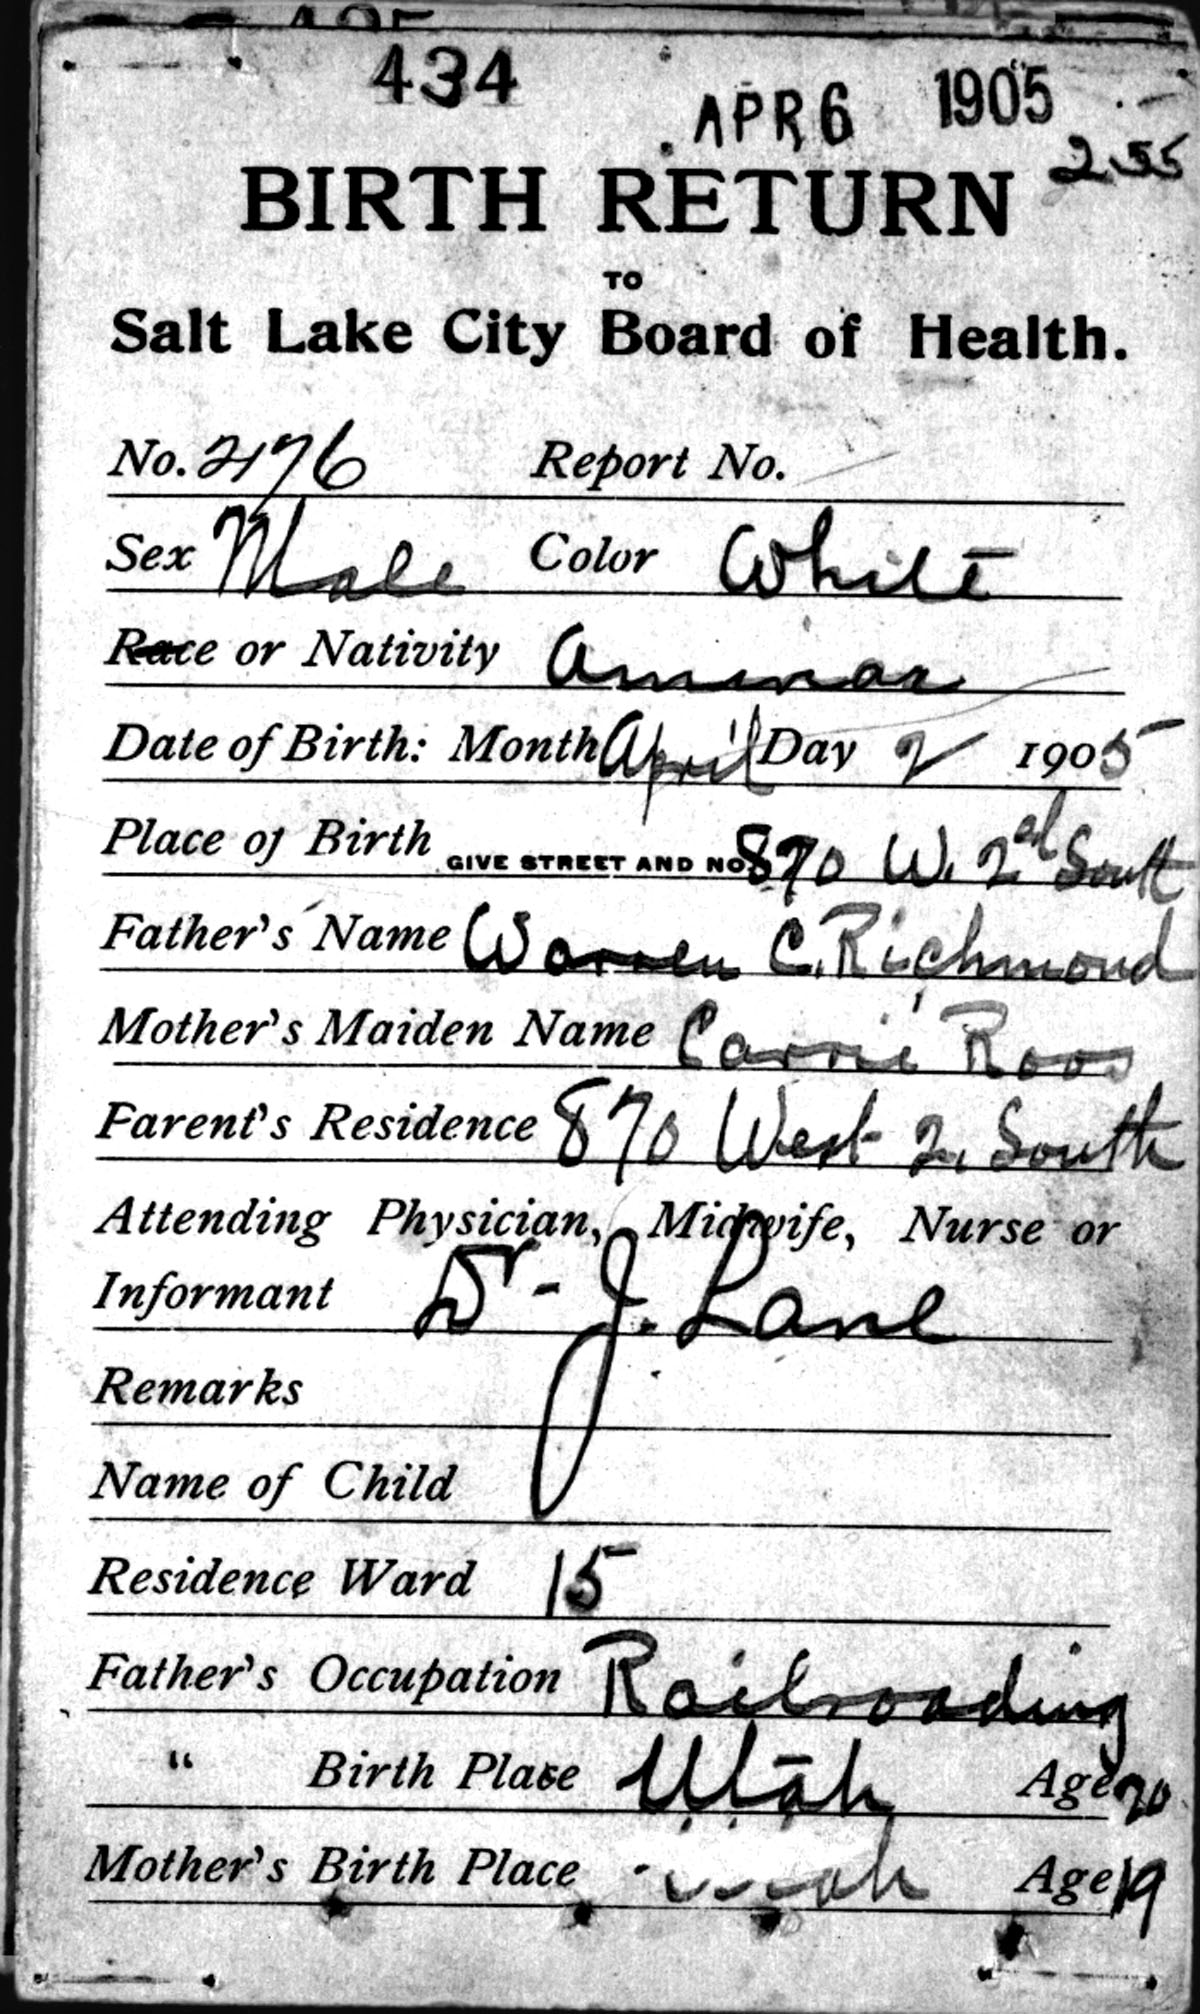 434
APR 6 1905
255
BIRTH RETURN
TO
Salt Lake City Board of Health.
No. 2176 Report No.
Sex Male Color White
Race or Nativity
Date of Birth: Month April Day 2 1905
Place of Birth GIVE STREET AND NO. 870 W. 2nd South
Father's Name Warren C. Richmond
Mother's Maiden Name Carrie Roos
Farent's Residence 870 West 2. South
Attending Physician, Midwife, Nurse or
Informant Dr - J. Lane
Remarks
Name of Child
Residence Ward 15
Father's Occupation Railroading
“ Birth Place Utah Age 20
Mother's Birth Place Utah Age 19